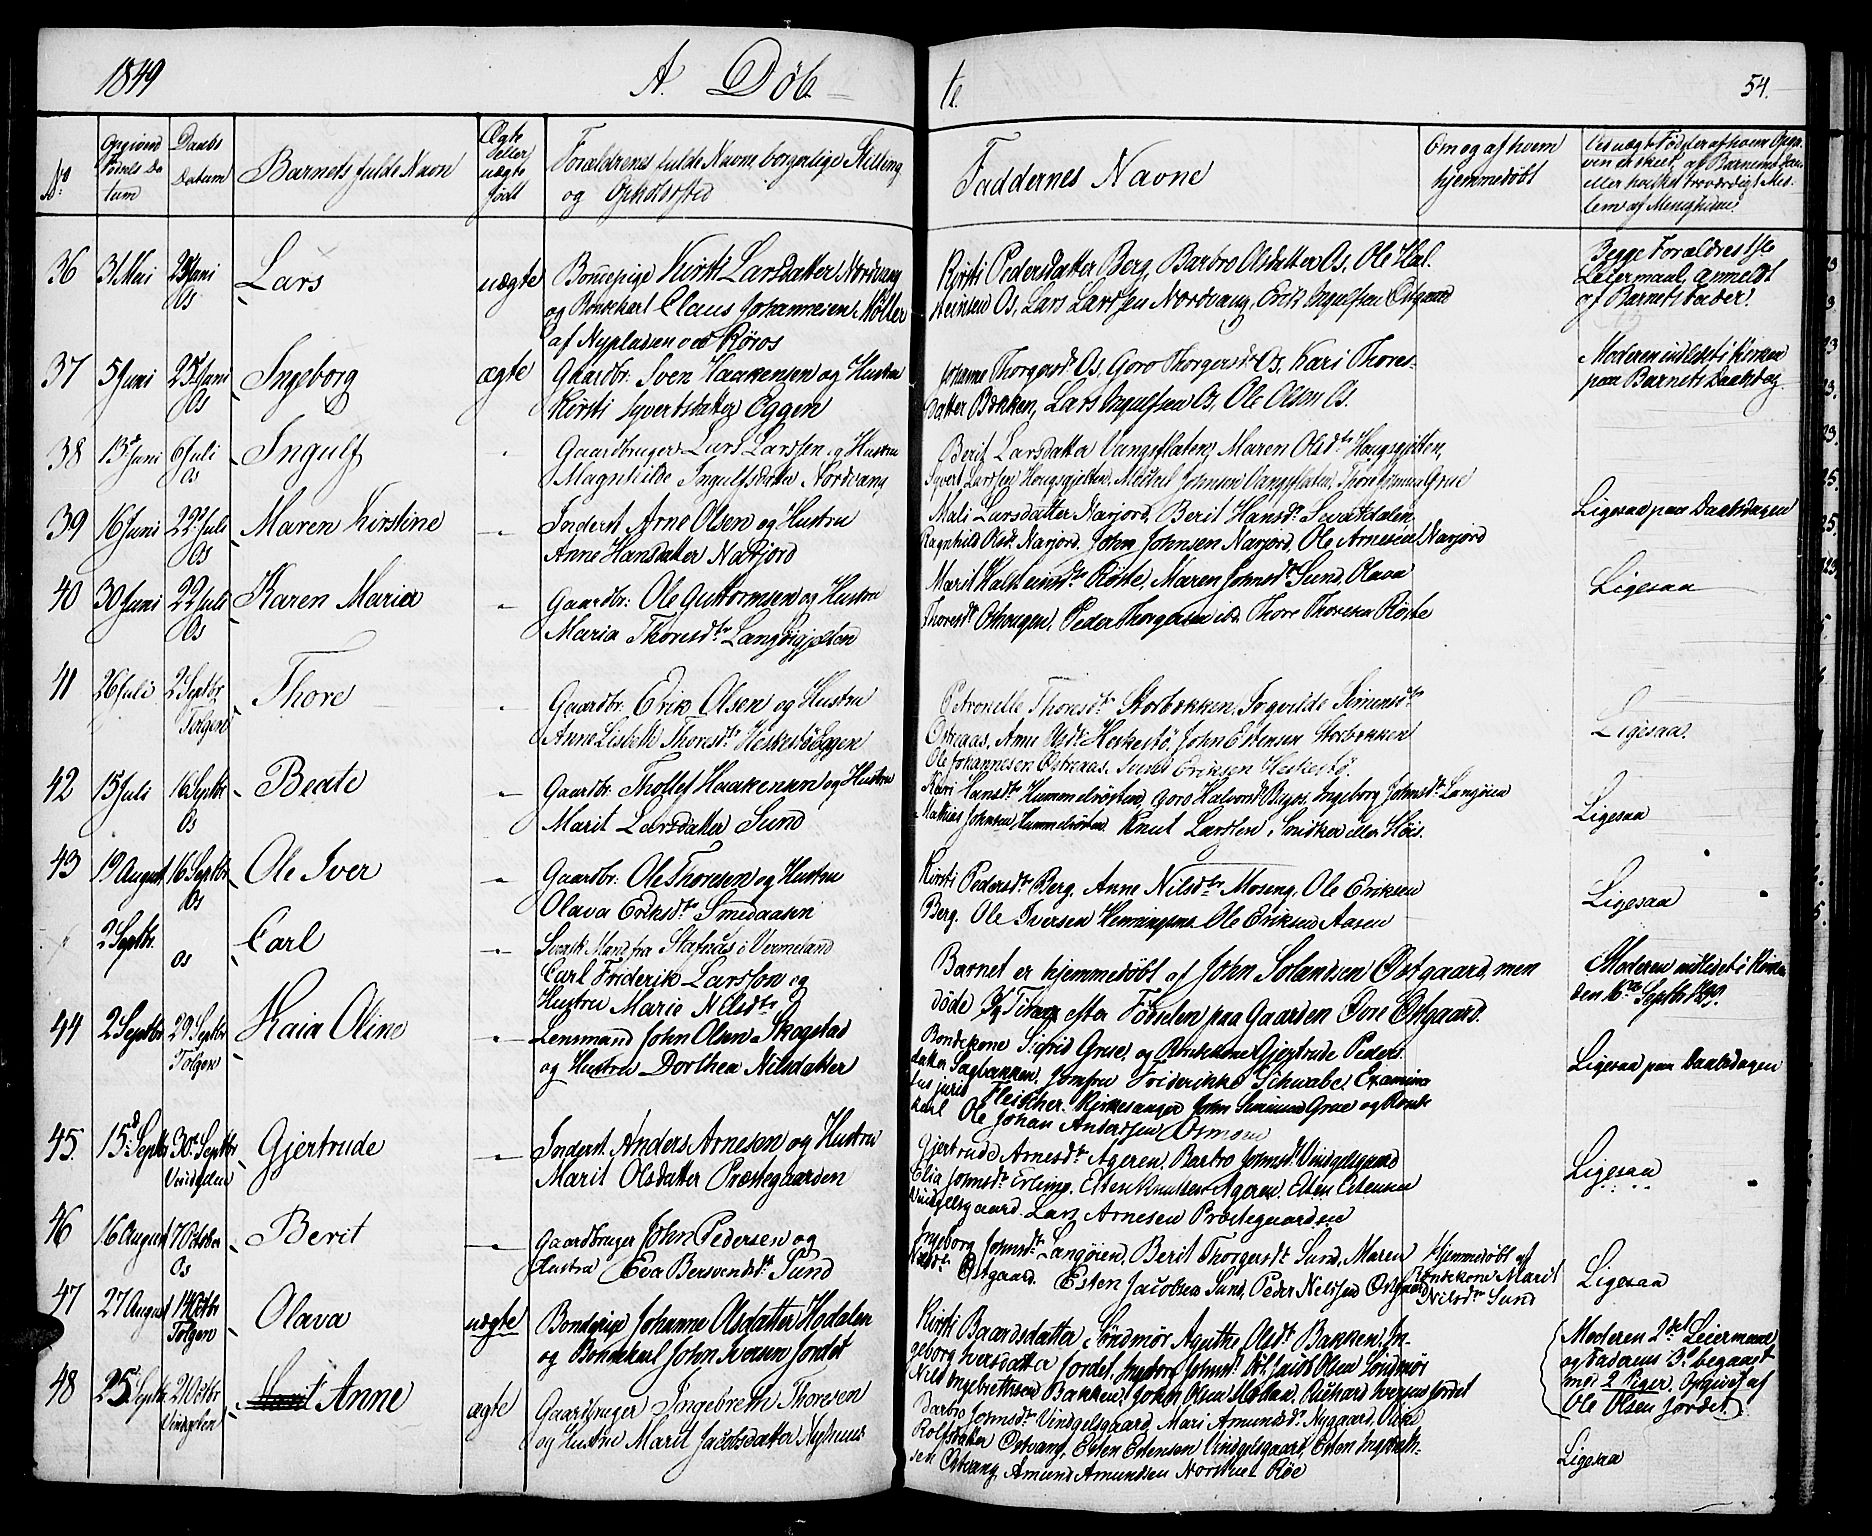 1849
A. Døb
te.
54.
No
Opgivend Fødsels Datum
Daabs Datum
Barnets fulde Navn
Ægte eller uægte født
Forældrenes fulde Navne, borgerlige Stilling og Opholdsted
Faddernes Navne
Om og af hvem hjemmedøbt
36
31 Mai
28 Juni
Os
Lars
uægte
Bondepige Kirsti Larsdatter Nordvang
og Bondekarl Claus Johannesen Møller
af Nypladsen ved Røros
Kirsti Pedersdatter Berg, Barbro Olsdatter Os, Ole Hal-
steinsen Os, Lars Larssen Nordvang, Erik Ingulfsen Østgaard
Begge Forældres 1ste
Leiermaal, Anmeldt
af Barnets Fader.
37
5 Juni
25 Juni
Os
Ingeborg
ægte
Gaardbr. Sven Haakensen og Hustru
Kirsti Syvertsdatter Eggen
Johanne Thorgersdr Os, Goro Thorgersdr Os, Kari Thores-
datter Bekken, Lars Ingulfsen Os, Ole Olsen Os.
Moderen indledet i Kirken
paa Barnets Daabsdag
38
13de Juni
6 Juli
Os
Ingulf
Gaardbruger Lars Larssen og Hustru
Magnhilde Ingulfsdatter Nordvang
Berit Larsdatter Vangsflaten, Maren Olsdtr Hougsgjetten,
Syvert Larssen Hougsgjetten, Mikkel Johnsen Vangsflaten, Thore Grue
39
16 Juni
22 Juli
Os
Maren Kirstine
Inderst Arne Olsen og Hustru
Anne Hansdatter Narjord
Mali Larsdatter Narjord, Berit Hansdr Svartdalen,
Ragnhild Olsdr Narjord, John Johnsen Narjord, Ole Arnesen Narjord
Ligesaa paa Daabsdagen
40
30 Juni
22 Juli
Os
Karen Maria
Gaardbr: Ole Guttormsen og Hustru
Maria Thoresdtr Langsegjelten
Marit Halsteinsdtr Røste, Maren Johnsdr Sund, Olava
Thoresdr Osthougen, Peder Thorgersen ibd. Thore Thoresen Røste
Ligesaa
41
26 Juli
2 Septbr
Tolgen
Thore
Gaardbr. Erik Olsen og Hustru
Anne Lisbeth Thoresdtr HeskestøEggen
Petronelle Thoresdtr Storbekken, Sigvilde Simensdtr
Østeraas, Anne Olsdr Heskestø, John Estensen Storbekken
Ole Johannesen Østeraas, Svend Eriksen Heskestø.
Ligesaa.
42
15 Juli
16 Septbr
Os
Beate
Gaardbr. Thollef Haakensen og Hustru
Marit Larsdatter Sund
Kari Hansdr Hummelvolden, Goro Halvorsdr, Ingeborg Johnsdr Langøien
Mathias Johnsen Hummelvolden Knut Larssen, Snidker
Ligesaa
43
19 August
16 Septbr
Os
Ole Iver
Gaardbr: Ole Thoresen og Hustru
Olava Eriksdtr Smedaasen
Kirsti Pedersdr Berg, Anne Nilsdtr Moseng, Ole Eriksen
Berg, Ole Iversen Henningsmo Ole Eriksen Aasen
Ligesaa
2 Septbr.
Os
Carl
Svensk Mand fra i Vermeland
Carl Friderik Larsson og
Hustru Marie Nilsdtr
Barnet er hjemmedøbt af John Solandsen Østgaard, men
døde Timer efter Fødselen paa Gaarden Øvre Østgaard.
Moderen indledet i Kirken
den 16de Septbr 1849.
44
2 Septbr
29 Septbr
Tolgen
Kaia Oline
Lensmand John Olsen Skogstad
og Hustru Dorthea Nilsdatter
Bondekone Sigrid Grue, og Bondekone Gjertrude Peders-
datter Sagbakken, Jomfru Friderikke Schwabe, Examina-
tus juris Fleischer, Kirkesanger John Simensen Grue og Bonde-
karl Ole Johan Anderssen Osmoen
Ligesaa paa Daabsdagen
45.
15de Septbr
30te Septbr
Vindgelen
Gjertrude
Inderst. Anders Arnesen og Hustru
Marit Olsdatter Præstegaarden
Gjertrude Arnesdtr Ageren, Barbro Johnsdr Vindgelsgaard
Elia Johnsdr Erling, Esten Knutsen Ageren, Esten Estensen
Vindgelsgaard, Lars Arnesen Præstegaarden
Ligesaa
46
16 August
7 October
Os
Berit
Gaardbruger John Pedersen og
Hustru Eva Bersvendsdr Sund
Ingeborg Johnsdtr Langøien, Berit Thorgersdtr Sund, Maren
Østgaard, Esten Jacobsen Sund, Peder Nilssen Østgaard
Hjemmedøbt af
Bondekone Marit
Nilsdtr Sund
Ligesaa
47
27 August
14 Octbr
Tolgen
Olava
uægte
Bondepige Johanne Olsdatter Hodalen
og Bondekarl John Iversen Jordet
Kirsti Baardsdatter Søndmør, Agnethe Olsdr Bakken, In-
geborg Iversdatter Jordet, Ingeborg Johnsdr, Jacob Olsen Søndmør
Nils Ingebrethsen Bakken, John Olsen Holan, Rikard Iversen Jordet
Moderen 2det Leiermaal
og Faderens 3de begaaet
med 2 Piger. Opgivet af
Ole Olsen Jordet
48
25 Septbr
21 Octbr
Vindgelen
Anne
ægte
Gaardbruger Ingebreth Thoresen
og Hustru Marit Jacobsdatter Nyhuus
Barbro Johnsdtr Vindgelsgaard, Mari Amundsdr Nygaard,
Rolfsdatter Østvang, Esten Estensen Vindgelsgaard, Esten Ingebreth-
sen Østvang, Amund Amundsen Norstuen Røe
Ligesaa